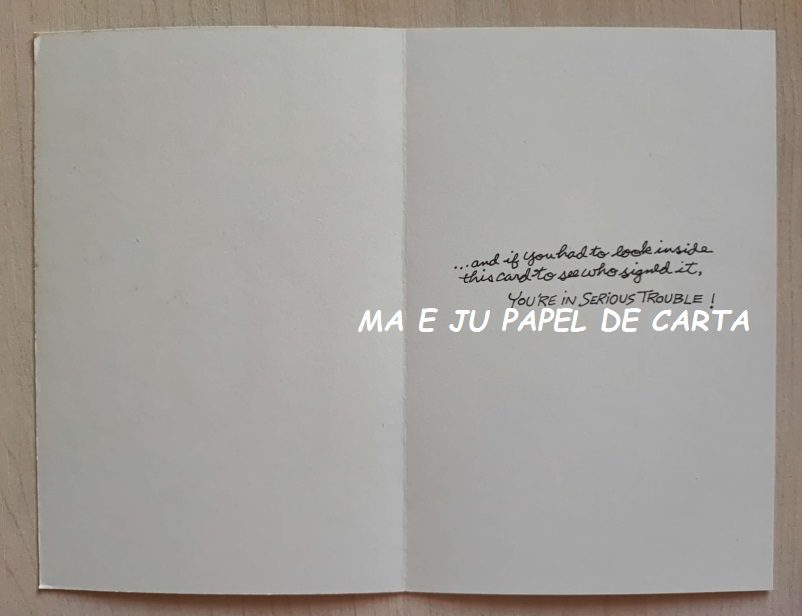 ...and if you had to look inside
this card to see who signed it,
YOU'RE IN SERIOUS TROUBLE !
MA E JU PAPEL DE CARTA